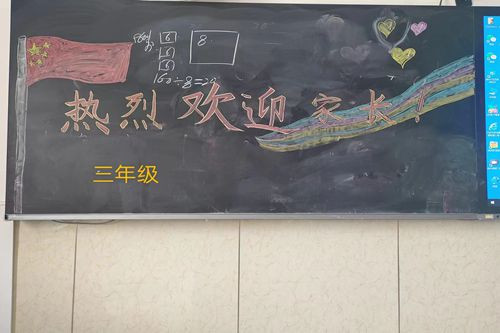 8
6
6
6
160÷8=20
热烈欢迎家长!
三年级